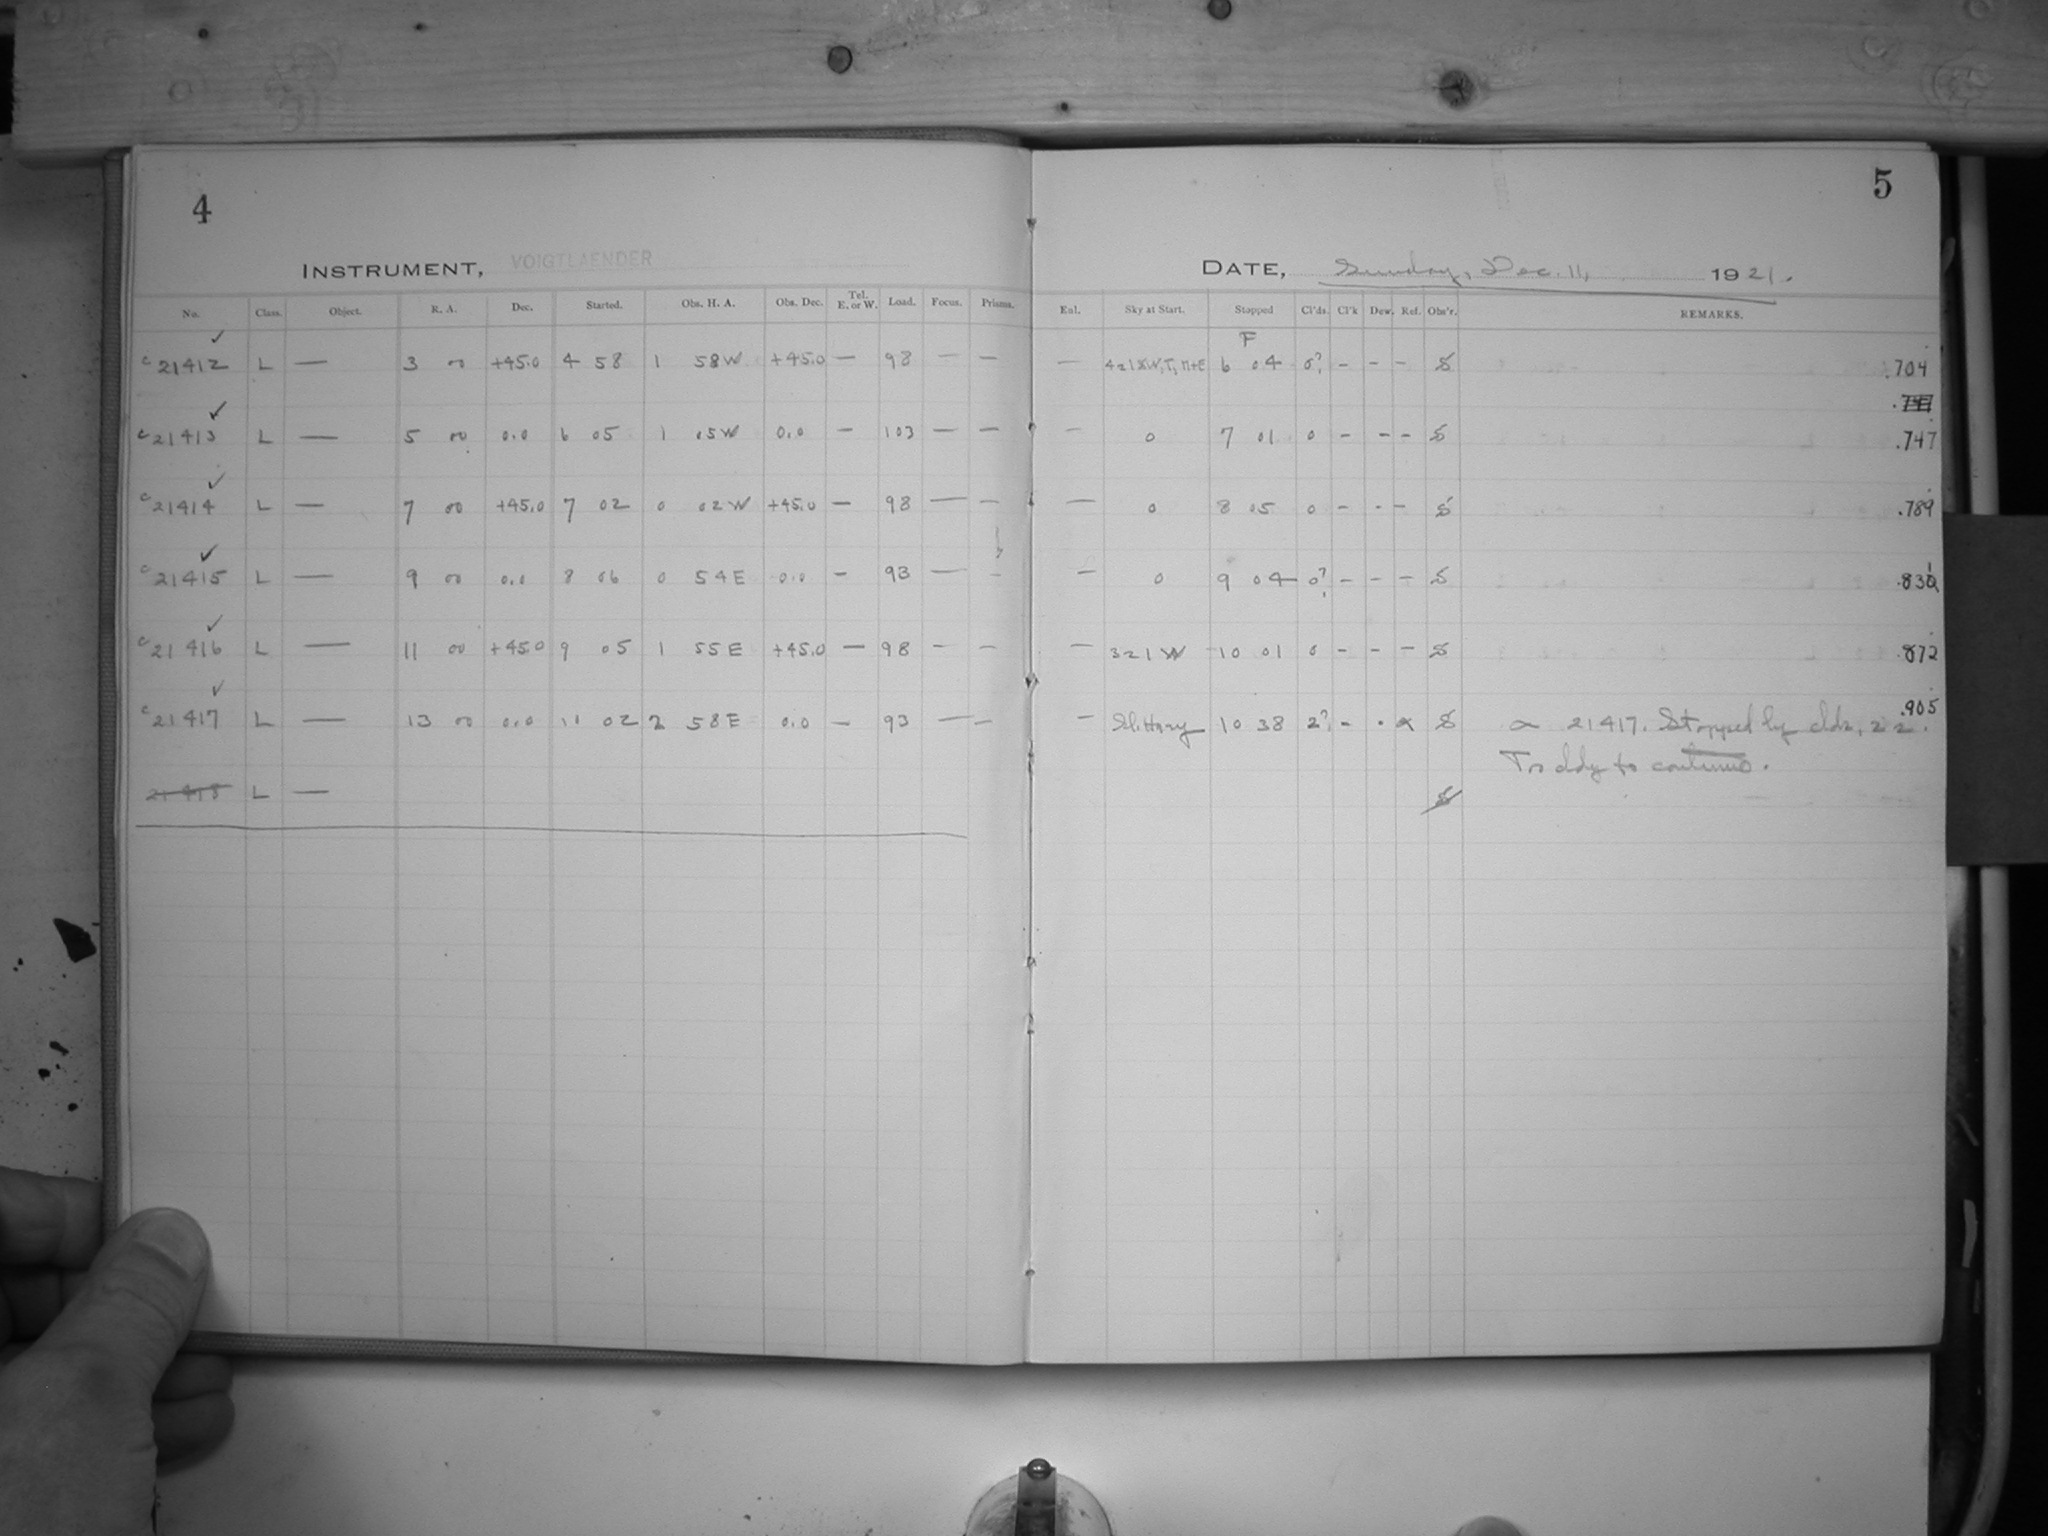 4
5
INSTRUMENT, VOIGTLAENDER
DATE, Sunday, Dec. 11, 1921.
No. Class. Object. R. A. Dec. Started. Obs. H. A. Obs. Dec. Tel. E. or W. Load. Focus. Prisms. Eul. Sky at Start. Stopped Cl'ds. Cl'k Dew. Ref. Obs'r. REMARKS.
F
c 21412 L — 3 00 +45.0 4 58 1 58 W +45.0 — 98 — — — 6 04 0? - - - S .704
c 21413 L — 5 00 0.0 6 05 1 05 W 0.0 — 103 — — — 0 7 01 0 - - - S .747
c 21414 L — 7 00 +45.0 7 02 0 02 W +45.0 — 98 — — — 0 8 05 0 - - - S .789
c 21415 L — 9 00 0.0 8 06 0 54 E 0.0 — 93 — — — 0 9 04 0? - - - S
c 21416 L — 11 00 +45.0 9 05 1 55 E +45.0 — 98 — — — 321 W 10 01 0 - - - S .872
c 21417 L — 13 00 0.0 11 02 2 58 E 0.0 — 93 — — — Sl. Hazy 10 38 2? - - α S .905
α 21417. Stopped by clds, 22.
Too cldy to continue.
21418 L — S